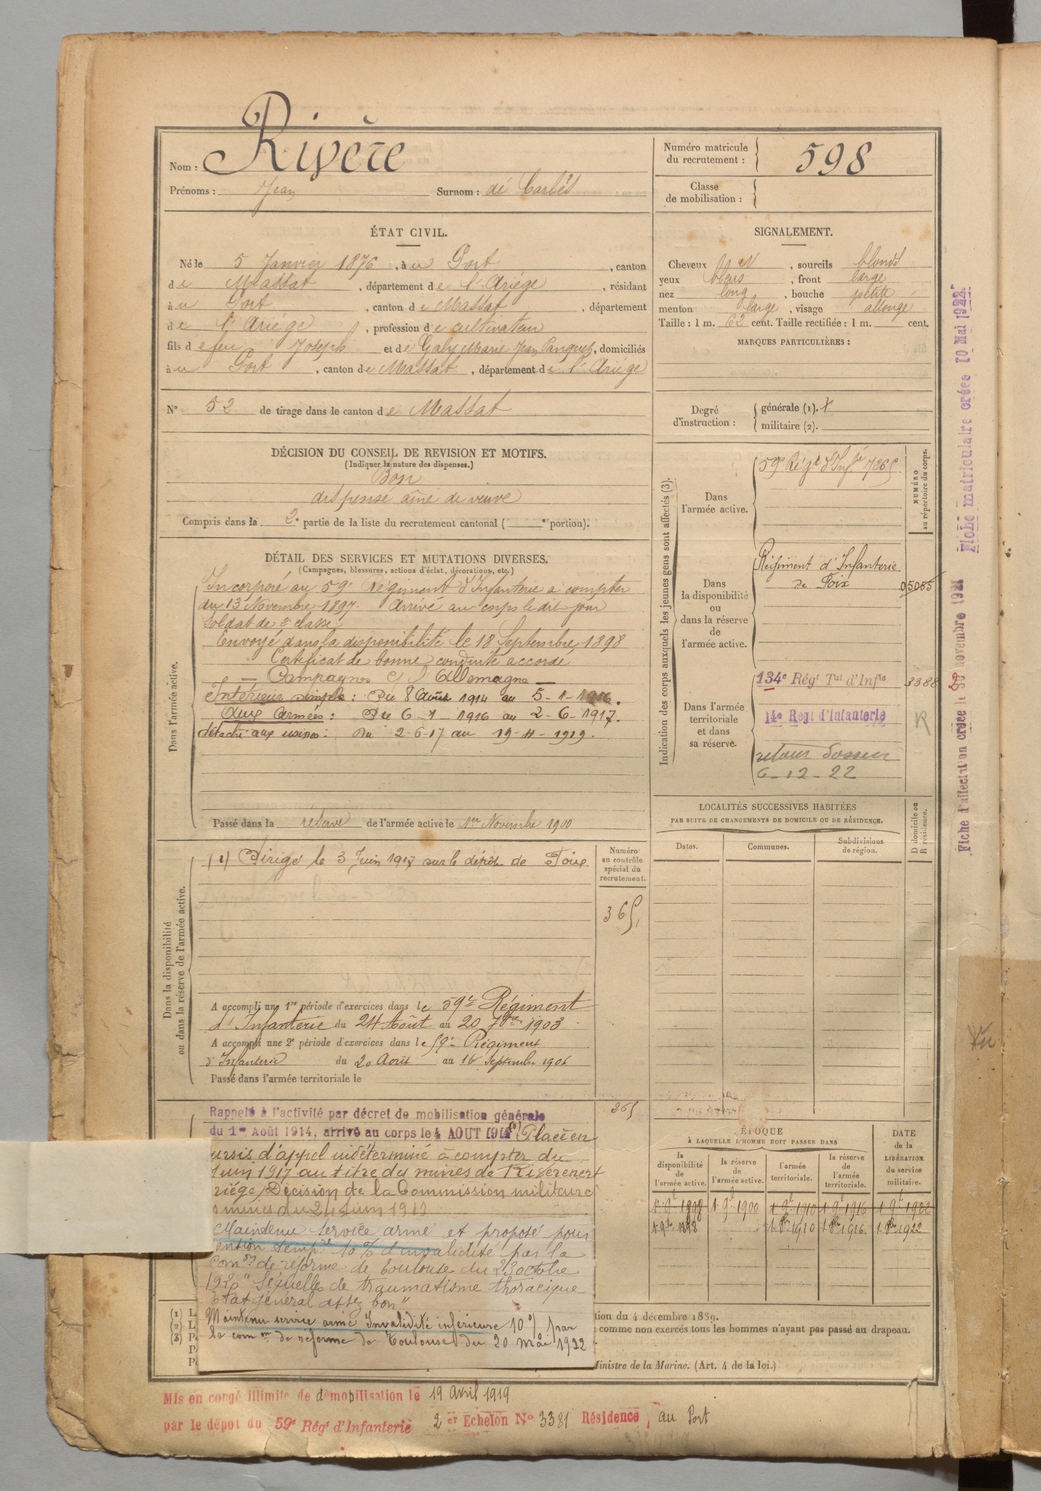 Nom : Rivère
Prénoms : Jean Surnom : dé Carlès
Numéro matricule
du recrutement : 598
Classe
de mobilisation :
ÉTAT CIVIL.
Né le 5 Janvier 1876, à u Port, canton
de Massat, département de l'Ariège, résidant
à u Port, canton de Massat, département
de l'Ariège, profession de cultivateur
fils de feu Joseph et de Galy Marie Jean Panquet, domiciliés
à u Port, canton de Massat, département de l'Ariège
N° 52 de tirage dans le canton de Massat
SIGNALEMENT.
Cheveux , sourcils blonds
yeux bleus, front large
nez long, bouche petite
menton large, visage allongé
Taille : 1 m. 62 cent. Taille rectifiée : 1 m. cent.
MARQUES PARTICULIÈRES :
Degré
d'instruction :
générale (1).
militaire (2).
DÉCISION DU CONSEIL DE REVISION ET MOTIFS.
(Indiquer la nature des dispenses.)
Bon
dispensé aîné de veuve
Compris dans la 2e partie de la liste du recrutement cantonal ( e portion).
DÉTAIL DES SERVICES ET MUTATIONS DIVERSES.
(Campagnes, blessures, actions d'éclat, décorations, etc.)
Dans l'armée active.
Incorporé au 59e Régiment d'Infanterie à compter
du 13 Novembre 1897. Arrivé au corps le dit jour
soldat de 2e classe
Envoyé dans la disponibilité le 18 Septembre 1898
Certificat de bonne conduite accordé
Campagnes C. l'Allemagne
Intérieur simple : Du 8 Août 1914 au 5-1-1916.
Aux Armées : Du 6-1-1916 au 2-6-1917.
détaché aux usines : Du 2-6-17 au 19-4-1919.
Passé dans la réserve de l'armée active le 1er Novembre 1900
Indication des corps auxquels les jeunes gens sont affectés (3).
NUMÉRO
au répertoire du corps.
Dans
l'armée active.
59e Régt d'Infie
Dans
la disponibilité
ou
dans la réserve
de
l'armée active.
Régiment d'Infanterie
de Foix
05055
Dans l'armée
territoriale
et dans
sa réserve.
134e Régt Tal d'Infie 3388
14e Regt d'Infanterie R
retour Dossier
6-12-22
LOCALITÉS SUCCESSIVES HABITÉES
PAR SUITE DE CHANGEMENTS DE DOMICILE OU DE RÉSIDENCE.
Dates.
Communes.
Subdivisions
de région.
Domicile ou
Résidence.
Dans la disponibilité
ou dans la réserve de l'armée active.
(1) Dirigé le 3 Juin 1917 sur le dépôt de Foix
Numéro
au contrôle
spécial du
recrutement.
365
A accompli une 1re période d'exercices dans le 59e Régiment
d'Infanterie du 24 Août au 20 7bre 1903
A accompli une 2e période d'exercices dans le 59e Régiment
d'Infanterie du 20 Août au 16 Septembre 1906
Passé dans l'armée territoriale le
365
Rappelé à l'activité par décret de mobilisation générale
du 1er Août 1914, arrivé au corps le 4 AOUT 1914 (1) Placé en
ursis d'appel indéterminé à compter du
Juin 1917 au titre du mines de Rivèrenert
riège) Décision de la Commission militaire
mines du 24 Juin 1917
Maintenu Service armé et proposé pour
ention temp.re 10 % d'invalidité par la
com.on de réforme de Toulouse du 23 octobre
1920 "Séquelle de traumatisme thoracique
Etat général assez bon"
Maintenu service armé Invalidité inférieure 10 % par
la com.on de réforme de Toulouse du 20 mai 1922
ÉPOQUE
À LAQUELLE L'HOMME DOIT PASSER DANS
la
disponibilité
de
l'armée active.
la réserve
de
l'armée active.
l'armée
territoriale.
la réserve
de
l'armée
territoriale.
DATE
de la
LIBÉRATION
du service
militaire.
1 9bre 1900
1 8bre 1910 1 8bre 1916 1 8bre 1922
tion du 4 décembre 1889.
comme non exercés tous les hommes n'ayant pas passé au drapeau.
Ministre de la Marine. (Art. 4 de la loi.)
Mis en congé illimité de démobilisation le 19 Avril 1919
par le dépôt du 59e Régt d'Infanterie 2 er Echelon N° 3381 Résidence, au Port
Fiche d'affectation créée le 30 novembre 1921
Fiche matriculaire créée 10 Mai 1922
Vu